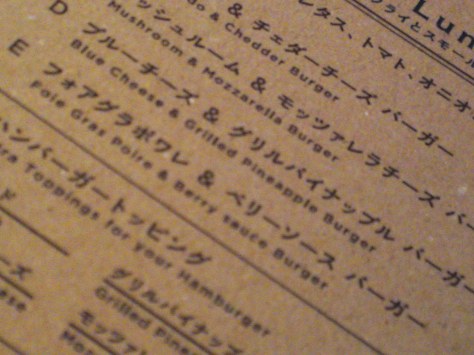 Lun
レタス、トマト、オニオ
& チェダーチーズ バーガー
do & Cheddar Burger
ッシュルーム & モッツァレラチーズ バー
Mushroom & Mozzarella Burger
D ブルーチーズ & グリルパイナップル バーガー
Blue Cheese & Grilled Pineapple Burger
E フォアグラポワレ & ベリーソース バーガー
Foie Gras Poire & Berry sauce Burger
ハンバーガートッピング
ra Toppings for your Hamburger
グリルパイナップ
Grilled Pine
モッツァ
ド
ーズ